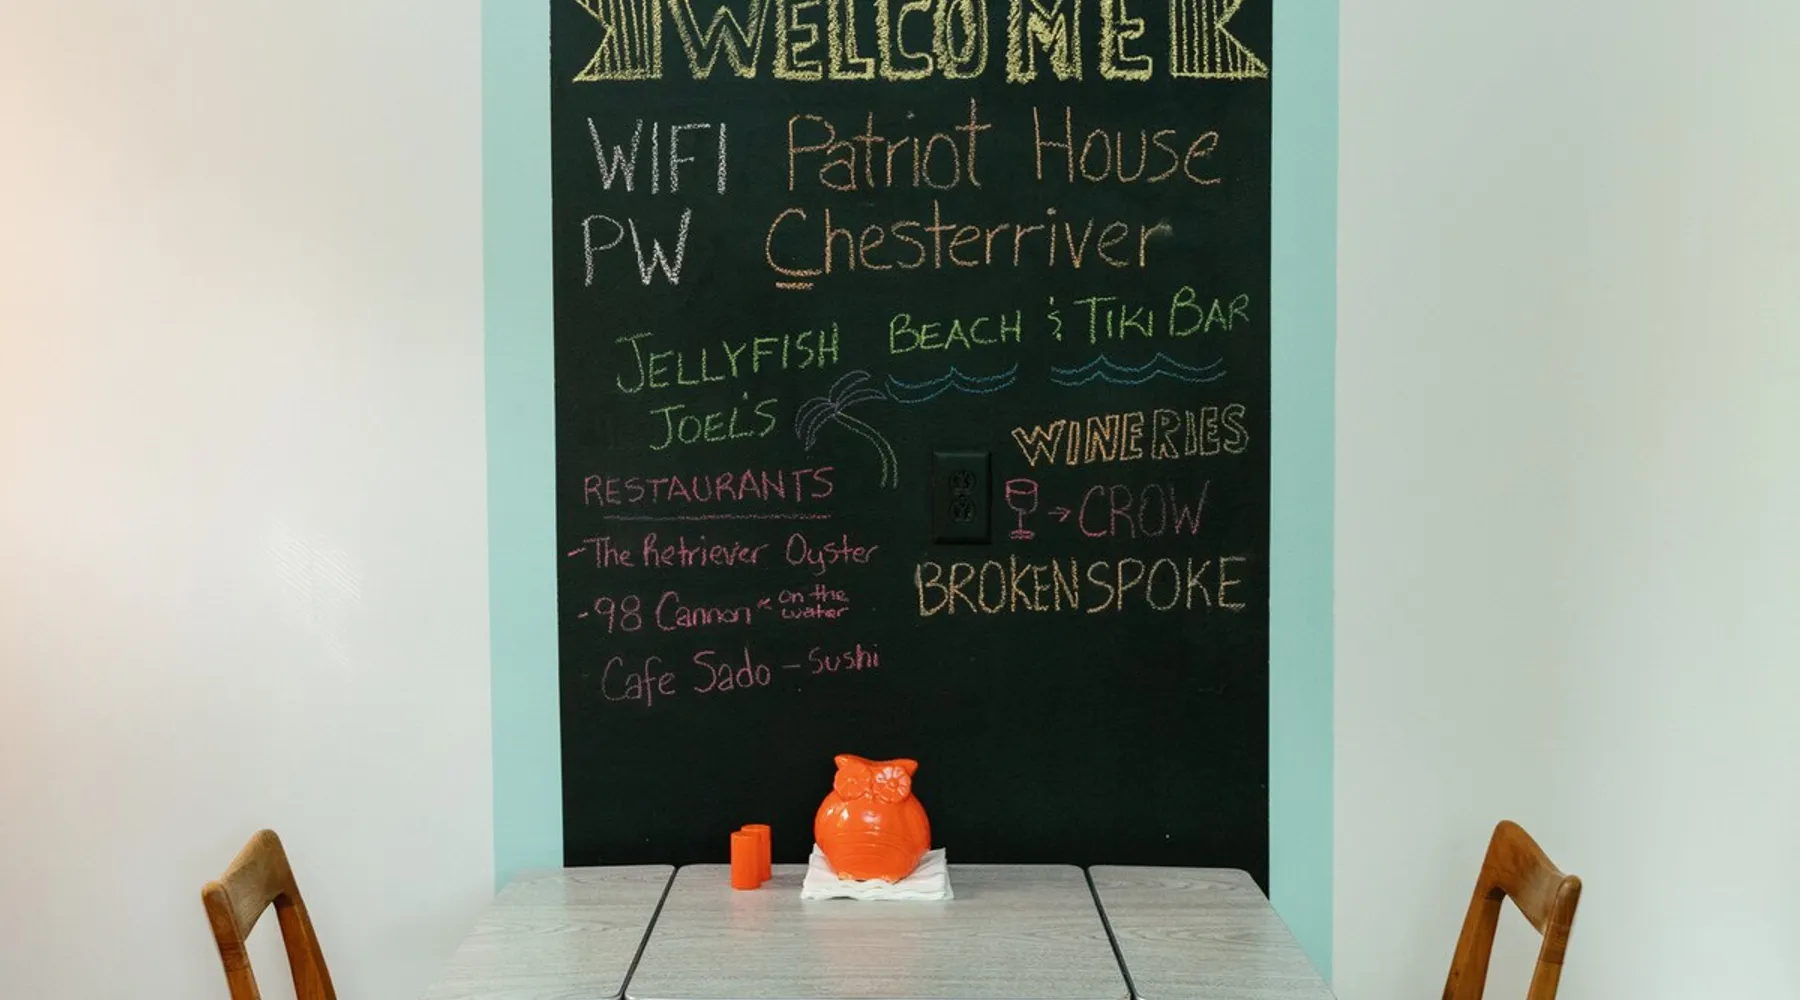 WELCOME
WIFI Patriot House
PW Chesterriver
JELLYFISH BEACH & TIKI BAR
JOEL'S
WINERIES
CROW
BROKEN SPOKE
RESTAURANTS
- The Retriever Oyster
- 98 Cannon * on the water
Cafe Sado - Sushi